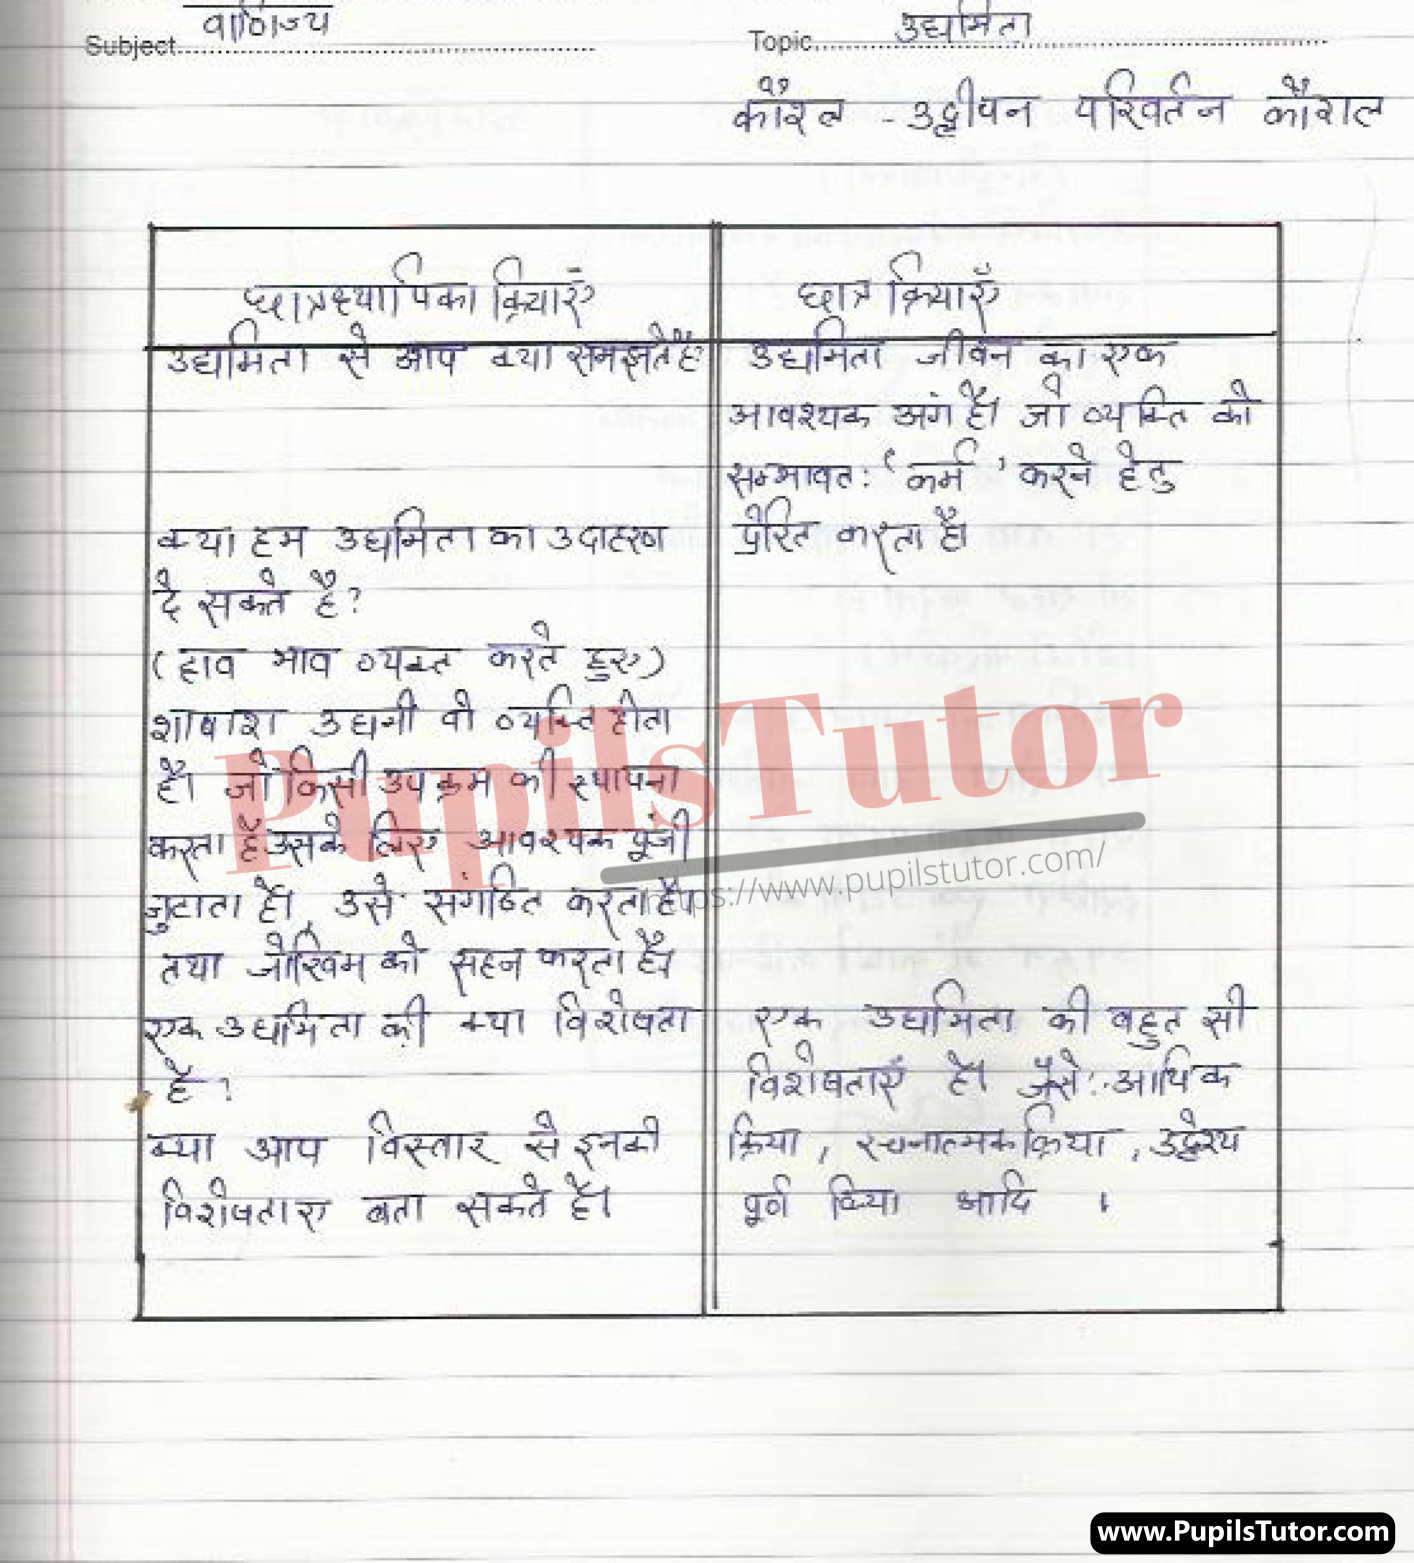 Subject वाणिज्य
Topic उद्यमिता
कौशल - उद्दीपन परिवर्तन कौशल
छात्राध्यापिका क्रियाएँ
छात्र क्रियाएँ
उद्यमिता से आप क्या समझते हैं
क्या हम उद्यमिता का उदाहरण
दे सकते है?
(हाव भाव व्यक्त करते हुए)
शाबाश उद्यमी वो व्यक्ति होता
है। जो किसी उपक्रम की स्थापना
करता है उसके लिए आवश्यक पूंजी
जुटाता है।, उसे संगठित करता है।
तथा जोखिम को सहन करता है।
एक उद्यमिता की क्या विशेषता
है?
क्या आप विस्तार से इनकी
विशेषताए बता सकते है।
उद्यमिता जीवन का एक
आवश्यक अंग है। जो व्यक्ति को
सम्भावत: 'कर्म' करने हेतु
प्रेरित करता है।
एक उद्यमिता की बहुत सी
विशेषताएँ है। जैसे:- आर्थिक
क्रिया, रचनात्मक क्रिया, उद्देश्य
पूर्ण क्रिया आदि ।
PupilsTutor
https://www.pupilstutor.com/
www.PupilsTutor.com